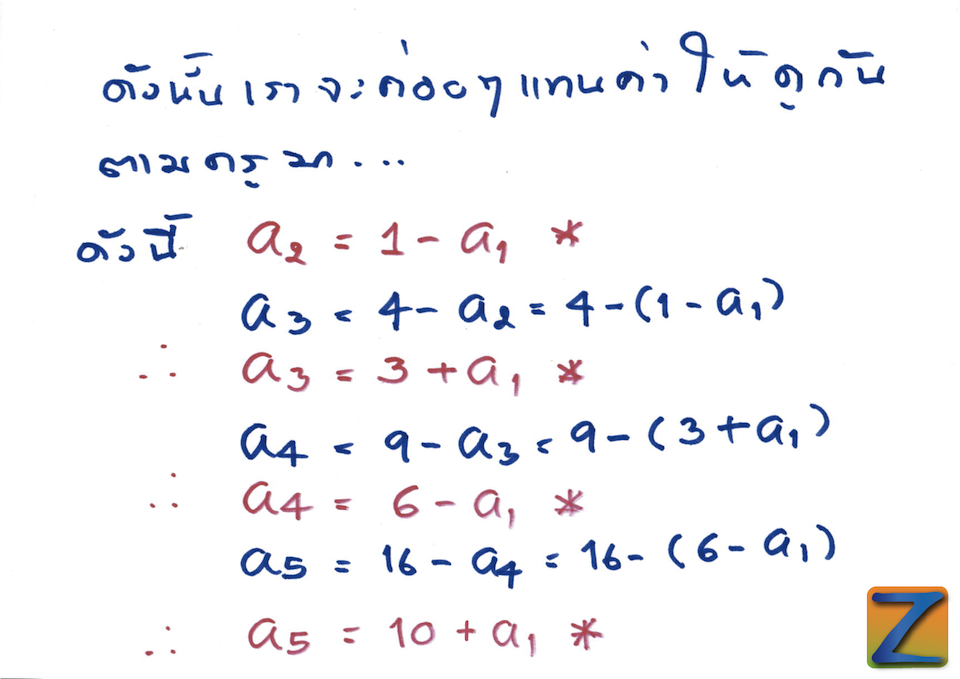 ดังนั้นเราจะค่อยๆแทนค่าให้ดูกัน
ตามครูมา...
ดังนี้ a₂ = 1 - a₁ *
a₃ = 4 - a₂ = 4 - (1 - a₁)
∴ a₃ = 3 + a₁ *
a₄ = 9 - a₃ = 9 - (3 + a₁)
∴ a₄ = 6 - a₁ *
a₅ = 16 - a₄ = 16 - (6 - a₁)
∴ a₅ = 10 + a₁ *
Z